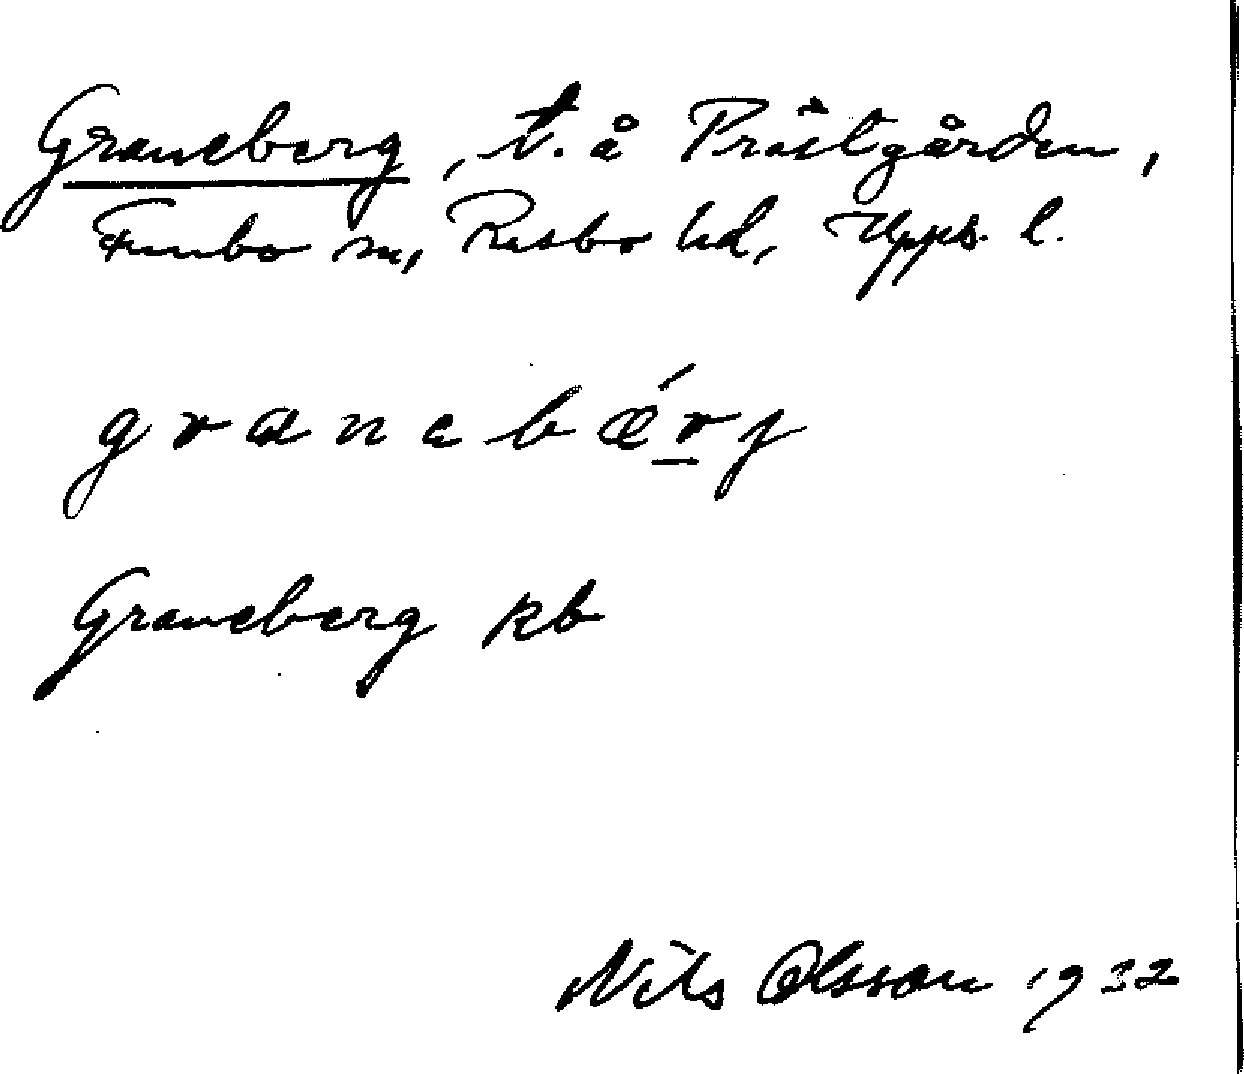 Graneberg, t. å Prästgården,
Funbo sn, Rasbo hd, Upps. l.
granebǽrj
Graneberg kb
Nils Olsson 1932